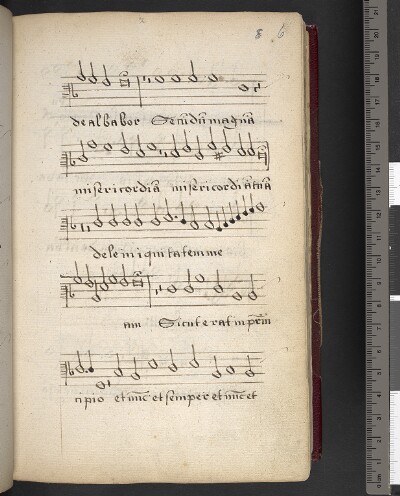 8 6
dealbabor Secūdū magnā
misericordiā misericordiā tuā
dele iniquitatem me
am Sicut erat in prin
cipio et nūc et semper et nūc et